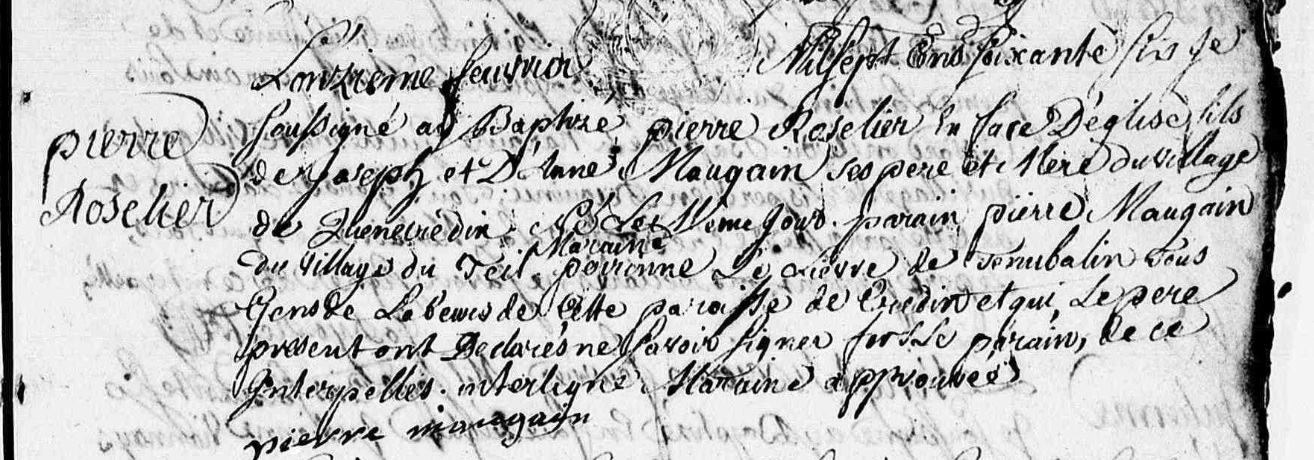 L'onzieme feuvrier Mil sept Cens soixante sis je
pierre
Roselier
soussigné ay Baptizé pierre Roselier en face D'église fils
de joseph et D'Anne Maugain ses pere et Mere du village
de né Le Meme jour parain pierre Maugain
Maraine
du village du Teil perrinne Le Lievre de tous
Gens de Labeur de Cette paroisse de Credin et qui Le pere
present ont Declarés ne savoir signer fors Le parain, de ce
Interpelles. interligne Maraine approuvée
pierre maugain